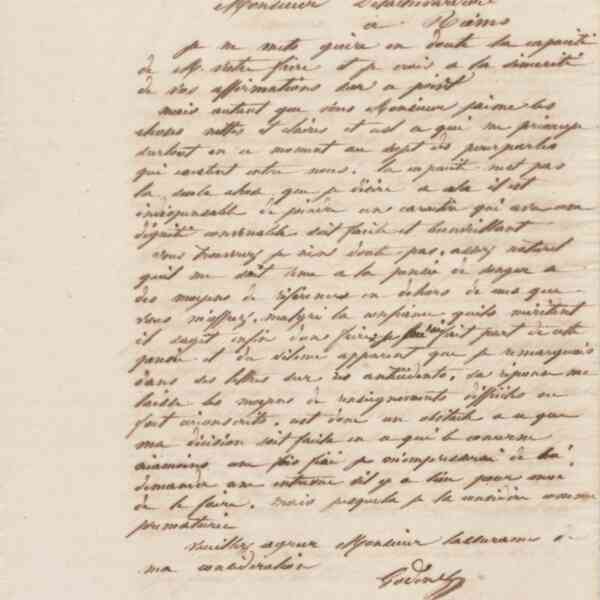 Monsieur
a Reims
je ne mets guère en doute la capacité
de M. votre frère et je crois a la sincerité
de vos affirmations sur ce point
mais autant que vous Monsieur j'aime les
choses nettes et claires et c'est ce qui me
surtout en ce moment au sujet des pourparlers
qui existent entre nous. la capacité n'est pas
la seule chose que je désire a cela il est
indispensable de joindre un caractère qui avec une
dignité convenable soit facile et bienveillant
vous trouverez je n'en doute pas, assez naturel
qu'il me soit venu a la pensée de songer a
des moyens de références en dehors de ceux que
vous m'offrez, malgré la confiance qu'ils méritent
il s'agit enfin fait part de cette
pensée et du silence apparent que je remarquais
dans ses lettres sur ses antécédents, sa réponse me
laisse les moyens de renseignements difficiles ou
fort circonscrits, c'est donc un obstacle a ce que
ma décision soit facile en ce que le concerne
néanmoins une fois fixé je m'empresserai de lui
demander une entrevue s'il y a lieu pour moi
de le faire. mais jusque la je la considère comme
prematurée
veuillez agréer Monsieur l'assurance de
ma considération
Godin